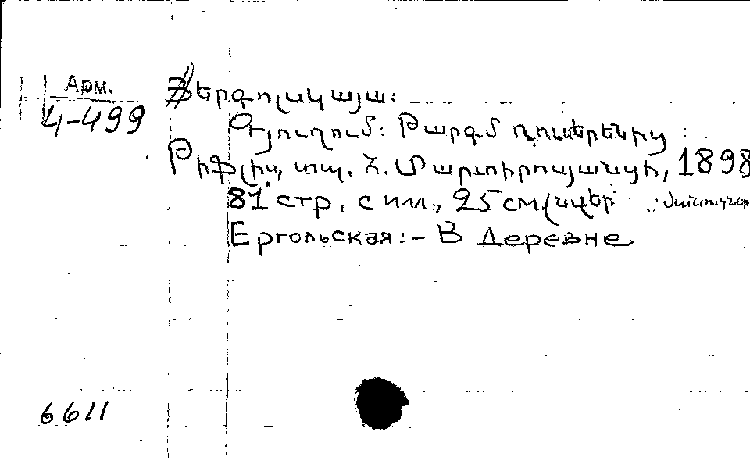 Арм.
4-499
Յերգոլսկայա:
Գյուղում: Թարգմ ռուսերենից
Թիֆլիս, տպ. Հ. Մարտիրոսյանցի, 1898
81 стр. с илл., 25 см
Ергольская:- В деревне
6611